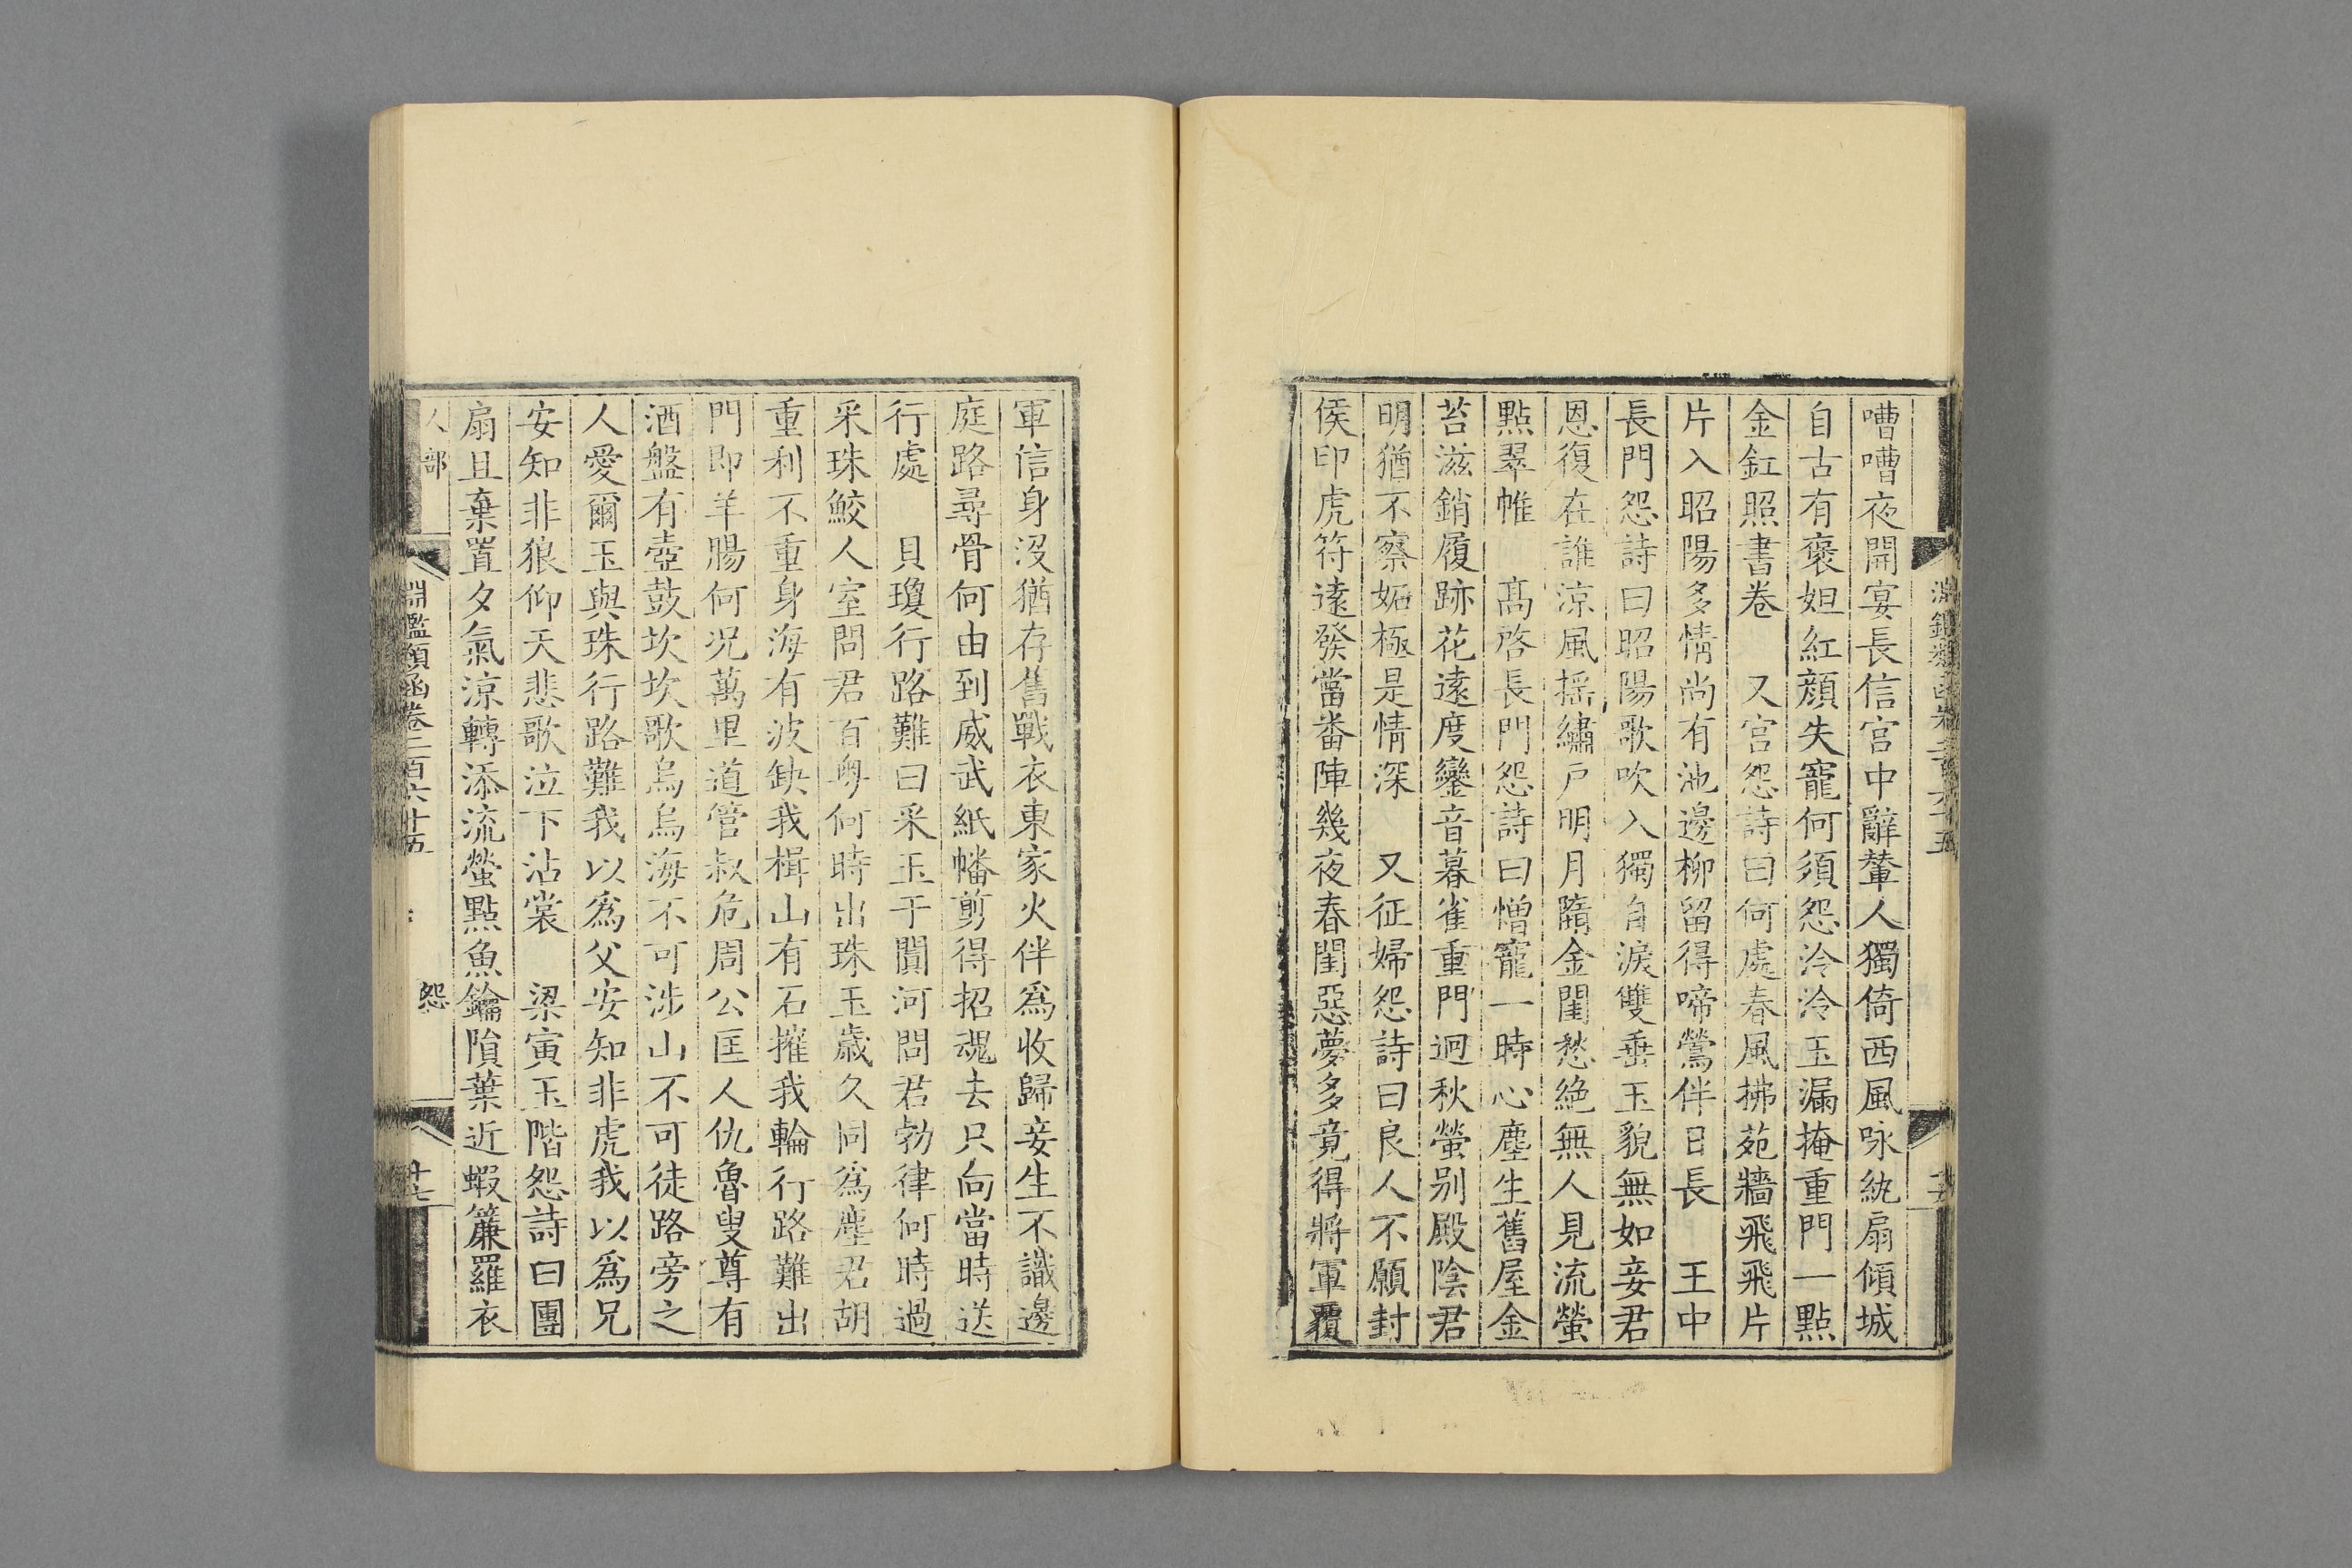 嘈嘈夜開宴長信宮中辭輦人獨倚西風咏紈扇傾城
自古有褒妲紅顔失寵何須怨泠泠玉漏掩重門一點
金釭照書卷　又宮怨詩曰何處春風拂苑牆飛飛片
片入昭陽多情尚有池邊柳留得啼鶯伴日長　王中
長門怨詩曰昭陽歌吹入獨自淚雙垂玉貌無如妾君
恩復在誰涼風揺繡戸明月隋金閨愁絶無人見流螢
點翠帷　髙啓長門怨詩曰憎寵一時心塵生舊屋金
苔滋銷履跡花逺度鑾音暮雀重門迥秋螢别殿陰君
明猶不察妬極是情深　又征婦怨詩曰良人不願封
侯印虎符逺發當畨陣幾夜春閨惡夢多竟得將軍覆
軍信身沒猶存舊戰衣東家火伴爲收歸妾生不識邊
庭路尋骨何由到威武紙幡剪得招魂去只向當時送
行處　貝瓊行路難曰采玉于闐河問君勃律何時過
采珠鮫人室問君百粤何時出珠玉歳久同爲塵君胡
重利不重身海有波缺我楫山有石摧我輪行路難出
門即羊腸何况萬里道管叔危周公匡人仇魯叟尊有
酒盤有壺鼓坎坎歌烏烏海不可涉山不可徒路旁之
人愛爾玉與珠行路難我以爲父安知非虎我以爲兄
安知非狼仰天悲歌泣下沾裳　梁寅玉階怨詩曰團
扇且棄置夕氣涼轉添流螢點魚鑰隕葉近蝦簾羅衣
人部　淵鑑類函卷二百六十五　怨　十七